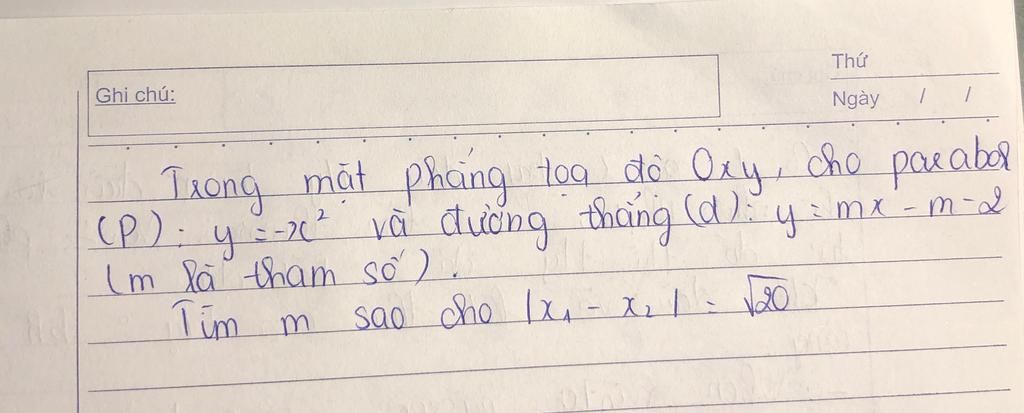 Thứ
Ghi chú:
Ngày / /
Trong mặt phẳng tọa độ Oxy, cho parabol
(P): y = -x² và đường thẳng (d): y = mx - m - 2
(m là tham số).
Tìm m sao cho |x₁ - x₂| = √20